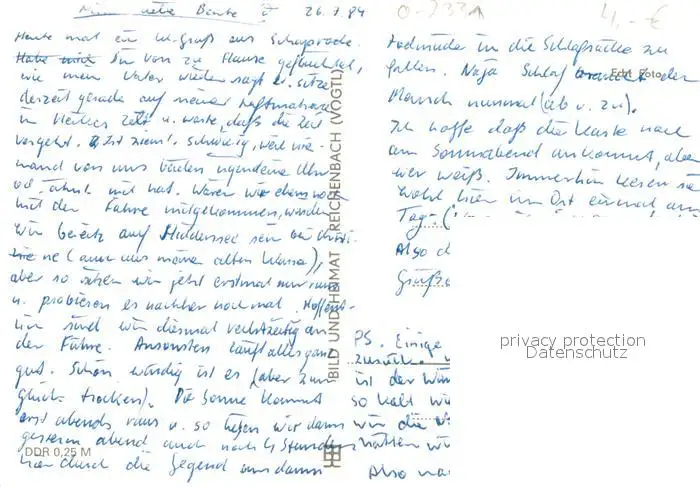 Mein liebe Beate! 26.7.84
Heute mal ein Ur-Gruß aus Schaprode.
Habe mich Bin von zu Hause geflüchtet,
wie mein Vater wieder sagt u. sitze
derzeit gerade auf meiner Luftmatratze
in Heikes Zelt u. warte, daß die Zeit
vergeht. Ist ziemL. schwierig, weil nie-
mand von uns beiden irgendeine Uhr
od. ähnl. mit hat. Wären wir eben noch
mit der Fähre mitgekommen, würden
wir bereits auf Hiddensee sein bei
ne (auch aus meiner alten Klasse),
aber so sitzen wir jetzt erstmal hier rum
u. probieren es nachher nochmal. Hoffent-
lich sind wir diesmal rechtzeitig an
der Fähre. Ansonsten läuft alles ganz
gut. Schön windig ist es (aber zum
Glück trocken). Die Sonne kommt
erst abends raus u. so liefen wir dann
gestern abend auch noch 4 Stunden
hier durch die Gegend um dann
todmüde in die Schlafsäcke zu
fallen. Naja Schlaf braucht der
Mensch nunmal (ab u. zu).
Ich hoffe daß die Karte noch
am Sonnabend ankommt, aber
wer weiß. Immerhin leeren sie
wohl hier im Ort einmal am
Tag
Also d
Grüße
PS. Einige
zurück.
ist der Win
so kalt wi
wir die
hätten wi
Also na
BILD UND HEIMAT REICHENBACH (VOGTL)
DDR 0,25 M
0-2331
4,- €
Erbt Foto
privacy protection
Datenschutz